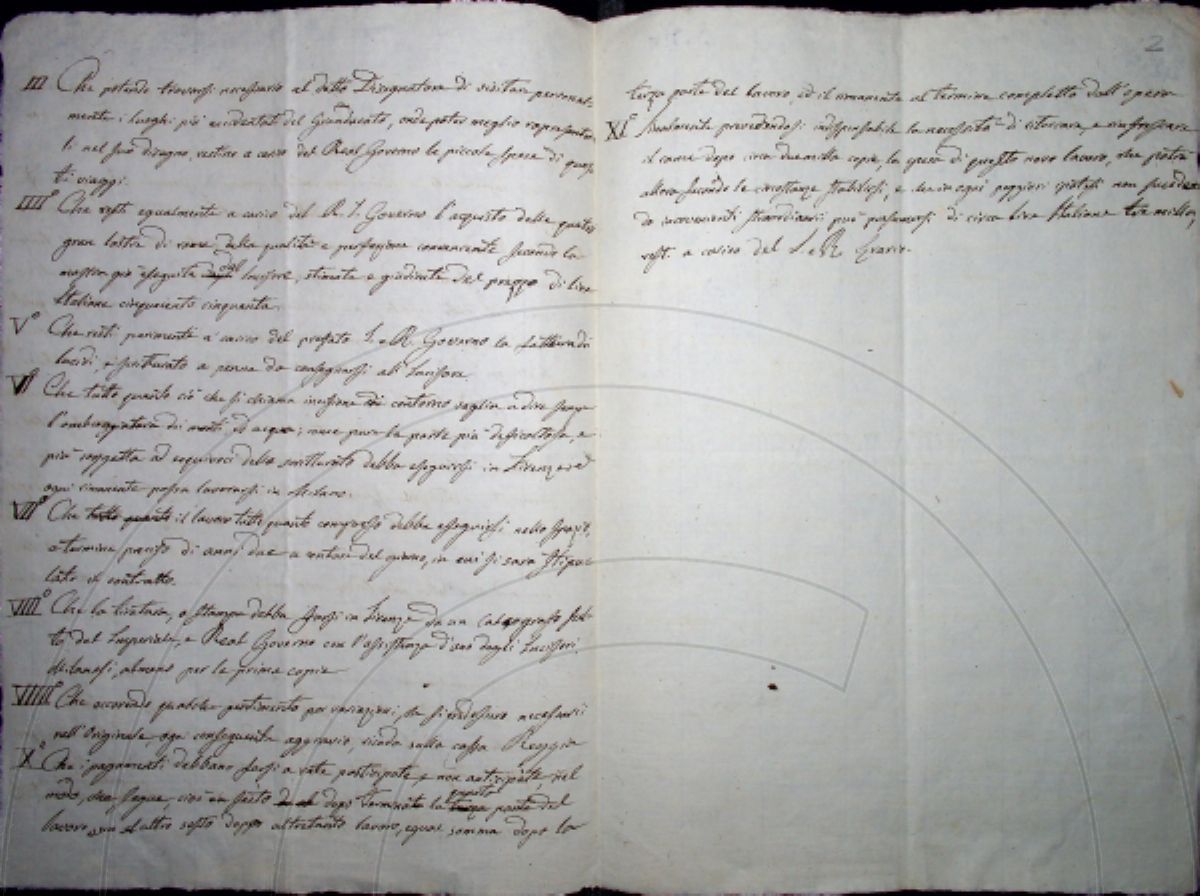 2
III Che potendo trovarsi necessario al detto Disegnatore di visitar personal-
mente i luoghi più accidentati del Granducato, onde poter meglio rapresentar-
li nel suo disegno, restino a carico del Real Governo le piccole spese di ques-
ti viaggi.
IIII° Che resti egualmente a carico del R. I. Governo l'acquisto delle quattro
gran lastre di rame della qualità e perfezione conveniente secondo la
mostra già eseguita dal Incisore, stimate e giudicate del prezzo di lire
Italiane cinquecento cinquanta.
V° Che resti parimente a carico del prefato I. e R. Governo la fattura di
lucidi, e scritturato a penna da consegnarsi all'Incisore.
VI° Che tutto quanto ciò che si chiama incisione di contorno vaglia a dire senza
l'ombreggiatura dei monti, ed acque; come pure la parte più difficoltosa, e
più soggetta ad equivoci dello scritturato debba eseguirsi in Firenze ed
ogni rimanente possa lavorarsi in Milano.
VII° Che tutto quanto il lavoro tutto quanto compreso debba eseguirsi nello spazio,
o termine preciso di anni due a contare del giorno, in cui si sarà stipu-
lato il contratto.
VIII° Che la tiratura, o stampa debba farsi in Firenze da un Calcografo scel-
to dal Imperiale, e Real Governo con l'assistenza d'uno degli Incisori
Milanesi, almeno per le prime copie
VIIII° Che occorendo qualche pentimento per variazioni, che si credessero necessarii
nell'Originale, ogni conseguente aggravio ricada sulla cassa Reggia
X° Che i pagamenti debbano farsi a rate posticipate e non anticipate, nel
modo, che segue, cioè un sesto dopo terminata la quarta parte del
lavoro, un altro sesto doppo altretanto lavoro, egual somma dopo la
terza parte del lavoro, ed il rimanente al termine completto dell'opera
XI° Finalmente prevedendosi indispensabile la necessità di ritoccare, e rinfrescare
il rame dopo circa due milla copie, la spesa di questo novo lavoro, che potrà
allora secondo le circostanze stabilirsi, e che in ogni peggiori ipotesi non succeden-
do incovenienti straordinarii può presumersi di circa lire Italiane tre milla,
resti a carico del I. e R. Erario.